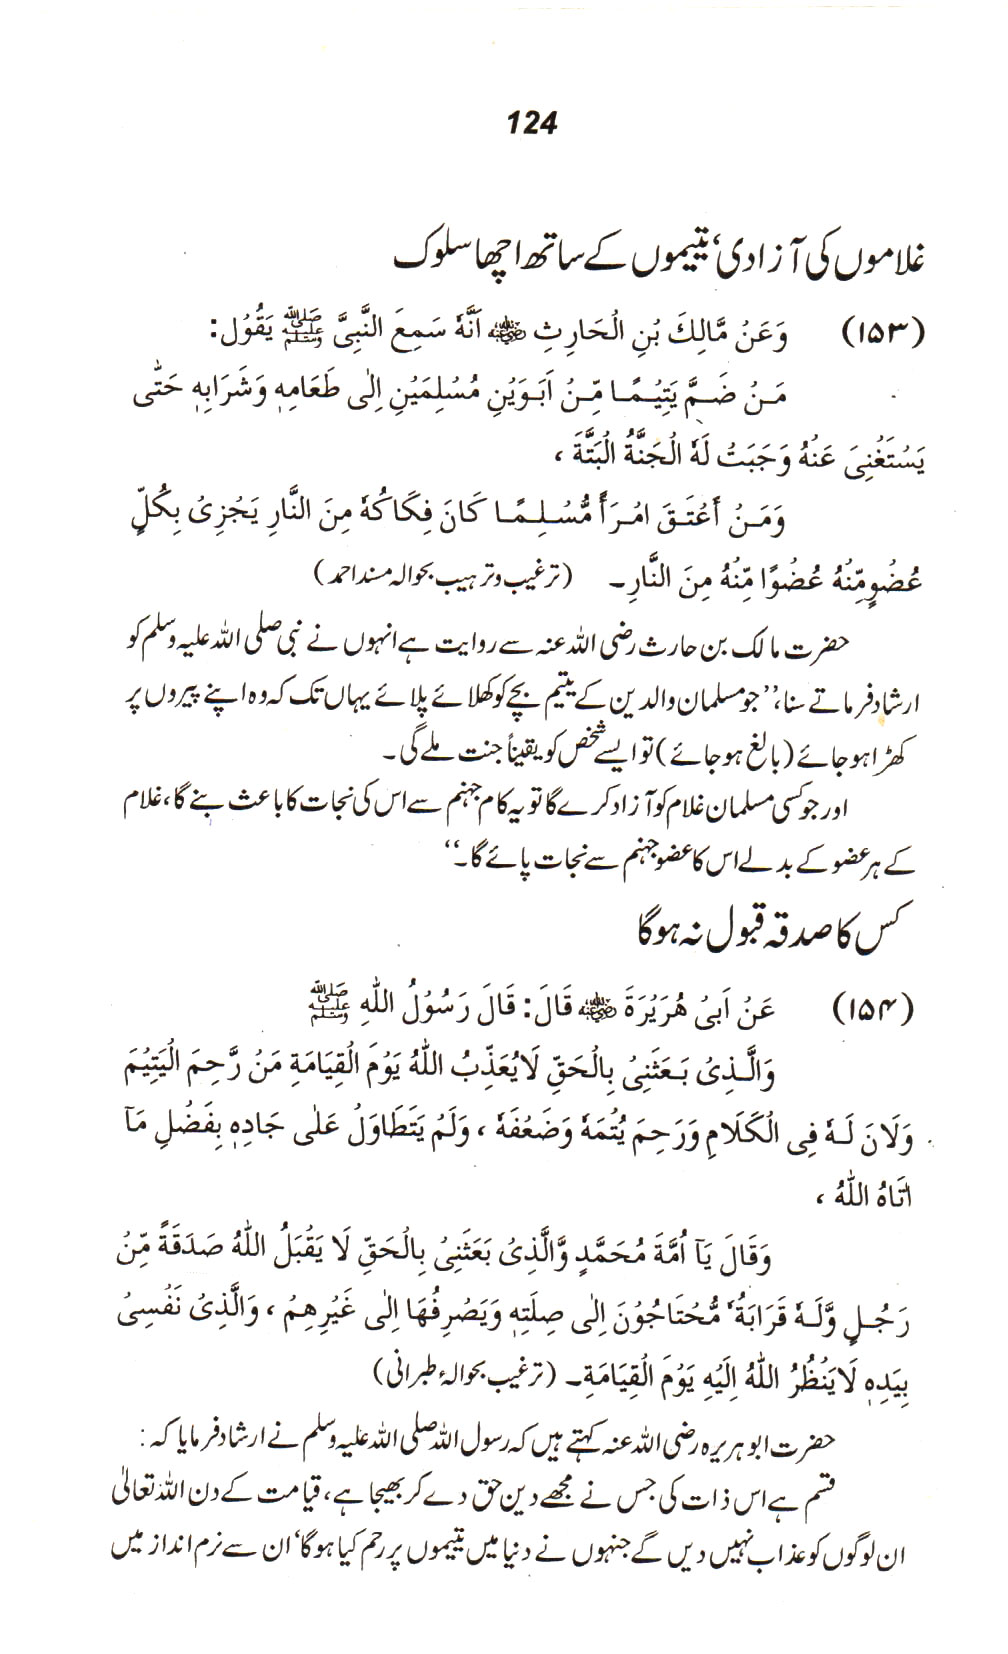 124
غلاموں کی آزادی، یتیموں کے ساتھ اچھا سلوک
(۱۵۳) وَعَنُ مَّالِكَ بُنِ الُحَارِثِ ؓ اَنَّهٗ سَمِعَ النَّبِیَّ ﷺ يَقُوُل:
مَنُ ضَمَّ يَتِيُمًا مِّنُ اَبَوَيُنِ مُسُلِمَيُنِ اِلٰى طَعَامِهٖ وَشَرَابِهٖ حَتّٰى
يَسُتَغُنِیَ عَنُهُ وَجَبَتُ لَهٗ الُجَنَّةُ الُبَتَّةَ ،
وَمَنُ أَعُتَقَ امُرَأً مُّسُلِمًا كَانَ فِكَاكُهٗ مِنَ النَّارِ يَجُزِیُ بِكُلِّ
عُضُوٍمِّنُهُ عُضُوًا مِّنُهُ مِنَ النَّارِ۔ (ترغیب وترہیب بحوالہ مسند احمد)
حضرت مالک بن حارث رضی اللہ عنہ سے روایت ہے انہوں نے نبی صلی اللہ علیہ وسلم کو
ارشاد فرماتے سنا، ’’جو مسلمان والدین کے یتیم بچے کو کھلائے پلائے یہاں تک کہ وہ اپنے پیروں پر
کھڑا ہو جائے (بالغ ہو جائے) تو ایسے شخص کو یقیناً جنت ملے گی۔
اور جو کسی مسلمان غلام کو آزاد کرے گا تو یہ کام جہنم سے اس کی نجات کا باعث بنے گا، غلام
کے ہر عضو کے بدلے اس کا عضو جہنم سے نجات پائے گا۔‘‘
کس کا صدقہ قبول نہ ہوگا
(۱۵۴) عَنُ اَبِیُ هُرَيُرَةَ ؓ قَالَ: قَالَ رَسُوُلُ اللّٰهِ ﷺ
وَالَّذِیُ بَعَثَنِیُ بِالُحَقِّ لَايُعَذِّبُ اللّٰهُ يَوُمَ الُقِيَامَةِ مَنُ رَّحِمَ الُيَتِيُمَ
وَلَانَ لَهٗ فِی الُكَلَامِ وَرَحِمَ يُتُمَهٗ وَضَعُفَهٗ ، وَلَمُ يَتَطَاوَلُ عَلٰى جَادِهٖ بِفَضُلِ مَآ
اٰتَاهُ اللّٰهُ ،
وَقَالَ يَآ اُمَّةَ مُحَمَّدٍ وَّالَّذِیُ بَعَثَنِیُ بِالُحَقِّ لَا يَقُبَلُ اللّٰهُ صَدَقَةً مِّنُ
رَجُلٍ وَّلَهٗ قَرَابَةُ مُّحُتَاجُوُنَ اِلٰى صِلَتِهٖ وَيَصُرِفُهَا اِلٰى غَيُرِهِمُ ، وَالَّذِیُ نَفُسِیُ
بِيَدِهٖ لَايَنُظُرُ اللّٰهُ اِلَيُهِ يَوُمَ الُقِيَامَةِ۔ (ترغیب بحوالۂ طبرانی)
حضرت ابو ہریرہ رضی اللہ عنہ کہتے ہیں کہ رسول اللہ صلی اللہ علیہ وسلم نے ارشاد فرمایا کہ:
قسم ہے اس ذات کی جس نے مجھے دین حق دے کر بھیجا ہے، قیامت کے دن اللہ تعالیٰ
ان لوگوں کو عذاب نہیں دیں گے جنہوں نے دنیا میں یتیموں پر رحم کیا ہوگا، ان سے نرم انداز میں